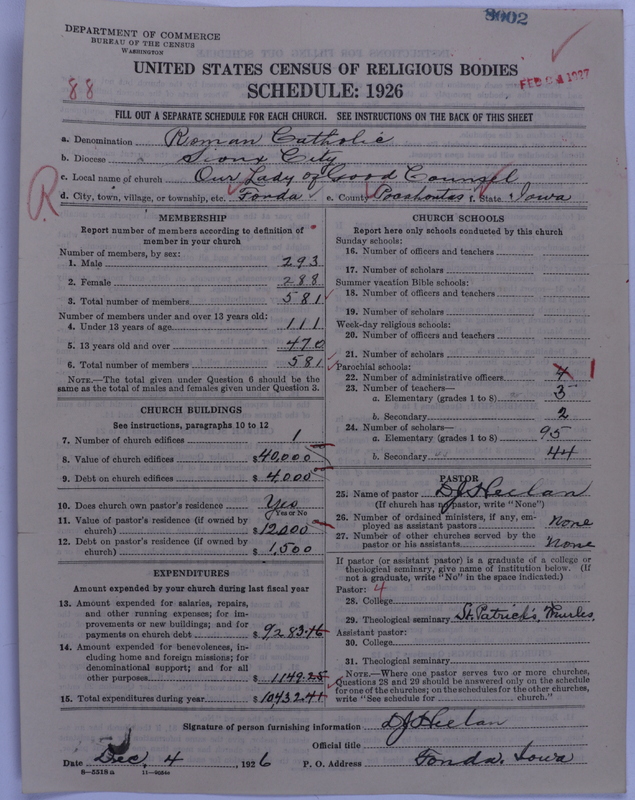 8002
DEPARTMENT OF COMMERCE
BUREAU OF THE CENSUS
WASHINGTON
FEB 1927
UNITED STATES CENSUS OF RELIGIOUS BODIES
88
SCHEDULE: 1926
FILL OUT A SEPARATE SCHEDULE FOR EACH CHURCH. SEE INSTRUCTIONS ON THE BACK OF THIS SHEET
a. Denomination Roman Catholic
b. Diocese Sioux City
c. Local name of church Our Lady of Good Counsel
R
d. City, town, village, or township, etc. Fonda e. County Pocahontas f. State Iowa
MEMBERSHIP
Report number of members according to definition of
member in your church
Number of members, by sex:
1. Male 293
2. Female 288
3. Total number of members 581
Number of members under and over 13 years old:
4. Under 13 years of age 111
5. 13 years old and over 470
6. Total number of members 581
NOTE.—The total given under Question 6 should be the
same as the total of males and females given under Question 3.
CHURCH BUILDINGS
See instructions, paragraphs 10 to 12
7. Number of church edifices 1
8. Value of church edifices $40,000
9. Debt on church edifices $4,000
10. Does church own pastor's residence Yes
Yes or No
11. Value of pastor's residence (if owned by
church) $12,000
12. Debt on pastor's residence (if owned by
church) $1,500
EXPENDITURES
Amount expended by your church during last fiscal year
13. Amount expended for salaries, repairs,
and other running expenses; for im-
provements or new buildings; and for
payments on church debt $9283.16
14. Amount expended for benevolences, in-
cluding home and foreign missions; for
denominational support; and for all
other purposes $1149.25
15. Total expenditures during year $10432.41
CHURCH SCHOOLS
Report here only schools conducted by this church
Sunday schools:
16. Number of officers and teachers
17. Number of scholars
Summer vacation Bible schools:
18. Number of officers and teachers
19. Number of scholars
Week-day religious schools:
20. Number of officers and teachers
21. Number of scholars
Parochial schools:
22. Number of administrative officers 4 1
23. Number of teachers—
a. Elementary (grades 1 to 8) 3
b. Secondary 2
24. Number of scholars—
a. Elementary (grades 1 to 8) 95
b. Secondary 44
PASTOR
25. Name of pastor D J Heelan
(If church has no pastor, write "None")
26. Number of ordained ministers, if any, em-
ployed as assistant pastors None
27. Number of other churches served by the
pastor or his assistants None
If pastor (or assistant pastor) is a graduate of a college or
theological seminary, give name of institution below. (If
not a graduate, write "No" in the space indicated.)
Pastor: 4
28. College
29. Theological seminary St. Patrick's, Thurles
Assistant pastor:
30. College
31. Theological seminary
NOTE.—Where one pastor serves two or more churches,
Questions 28 and 29 should be answered only on the schedule
for one of the churches; on the schedules for the other churches,
write "See schedule for church."
Signature of person furnishing information D J Heelan
Official title
Date Dec. 4, 1926 P. O. Address Fonda, Iowa
8—5318a